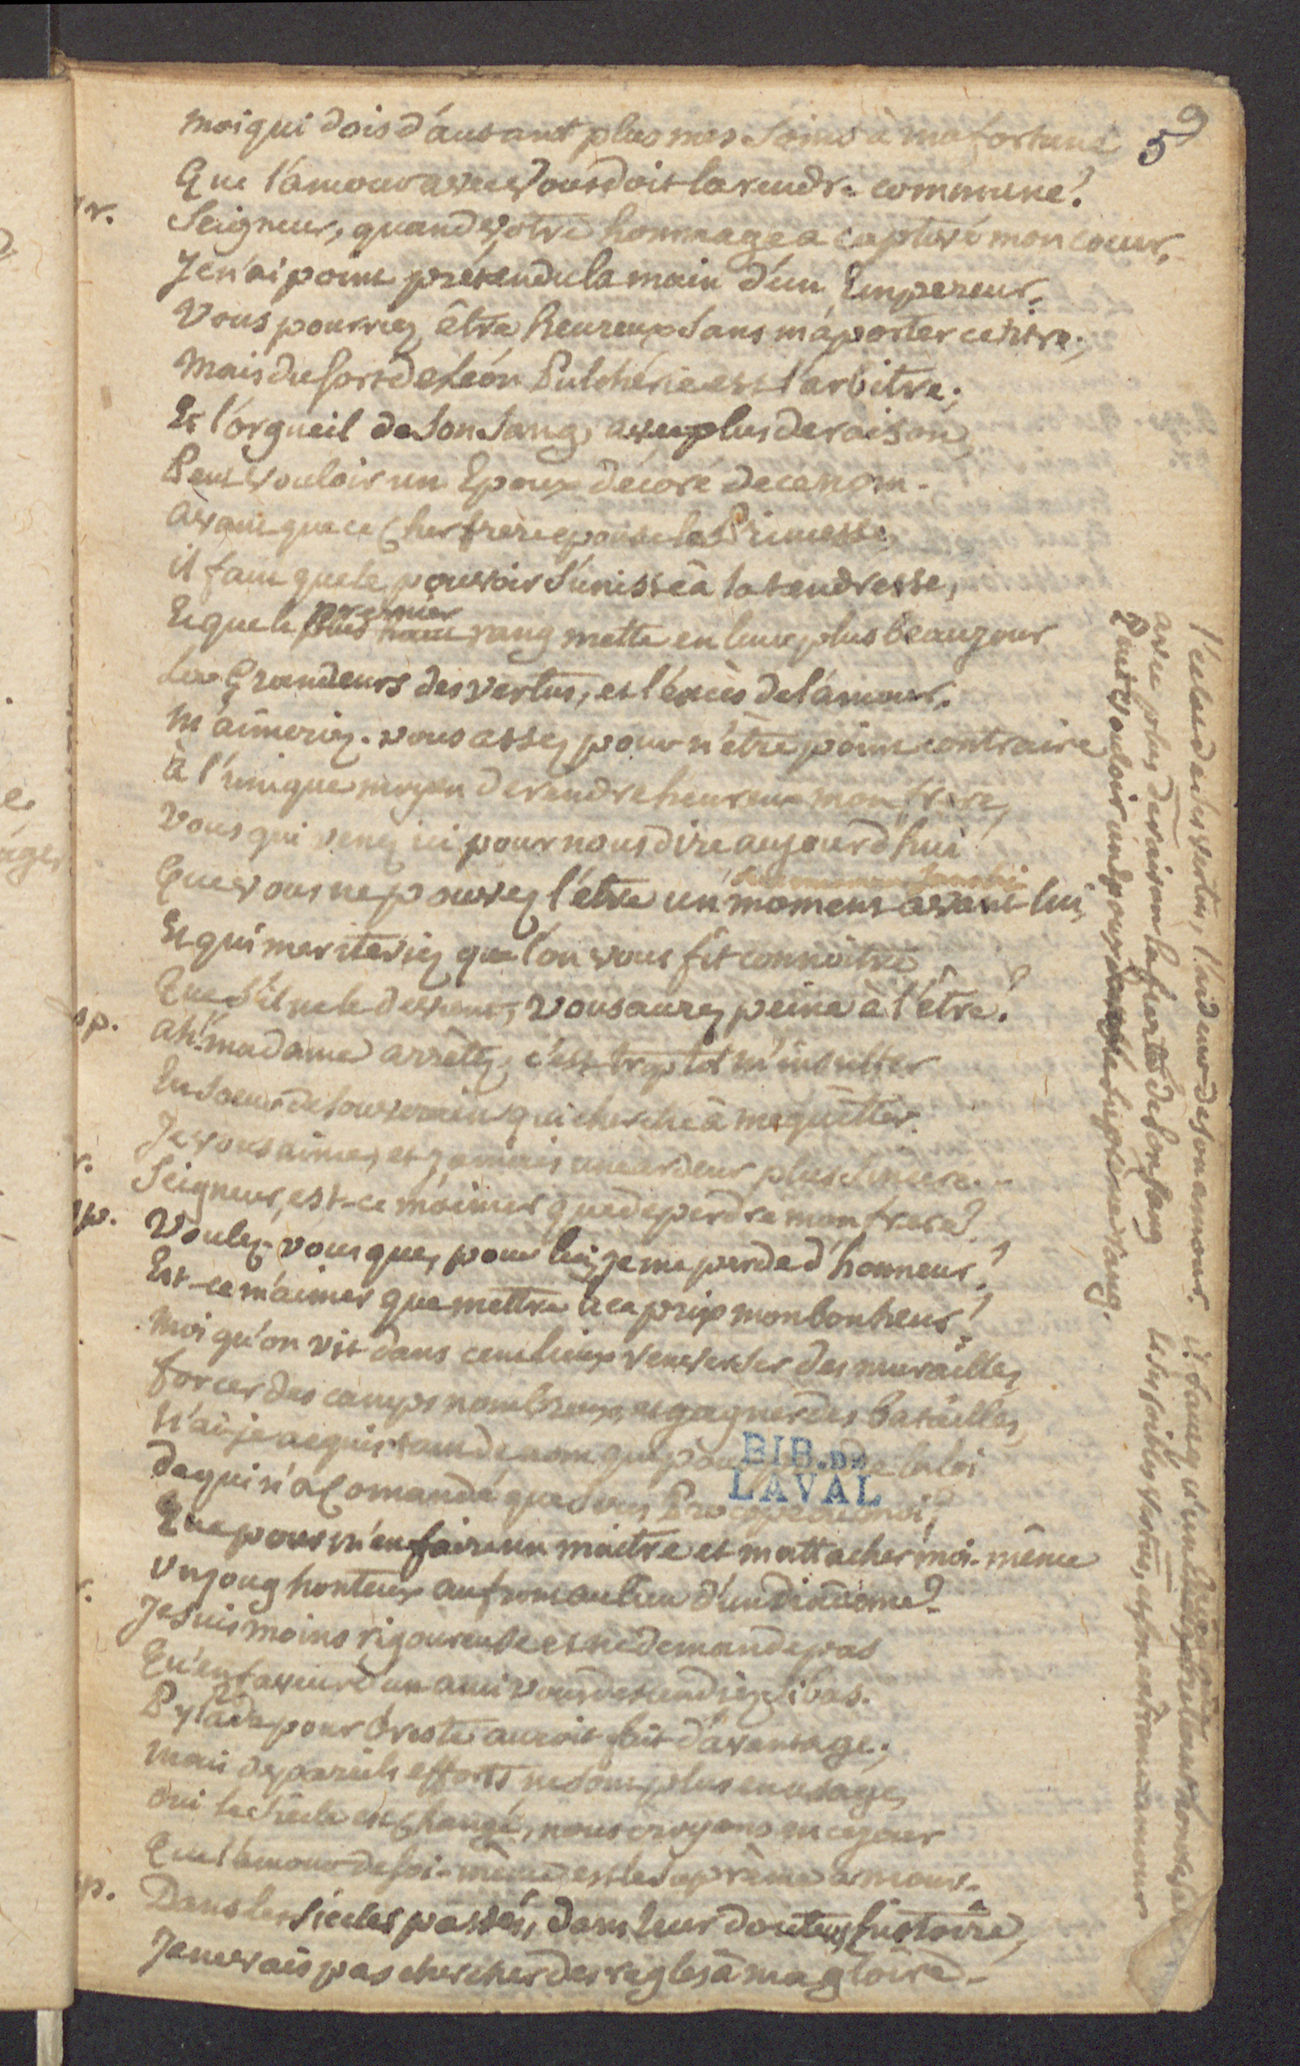 9
5
moi qui dois d'autant plus mes soins à ma fortune
Que l'amour avec vous doit la rendre commune?
r. Seigneur, quand votre hommage a captivé mon coeur,
Je n'ai point prétendu la main d'un Empereur.
Vous pourriez être heureux sans m'aporter ce titre;
Mais du sort de Léon Pulchérie est l'arbitre;
Et l'orgueil de son sang, avec plus de raison,
Peut vouloir un Epoux décoré de ce nom.
avant que ce cher frere epouse la Princesse,
il faut que le pouvoir s'unisse à la tendresse,
Et que le plus haut premier rang mette en leur plus beau jour
Les Grandeurs des vertus, et l'excès de l'amour.
M'aimeriez-vous assez pour n'être point contraire
à l'unique moyen de rendre heureux mon frere,
Vous qui venez ici pour nous dire aujourd'hui
Que vous ne pouvez l'etre un moment avant lui,
Et qui meriteriez que l'on vous fît connoitre
Que s'il ne le devient, vous aurez peine à l'être?
sp. ah! madame arrêtez, c'est trop tôt m'insulter
En soeur de souverain qui cherche à me quitter.
Je vous aime, et jamais une ardeur plus sincere...
r. Seigneur, est-ce m'aimer que de perdre mon frere?
sp. Voulez-vous que, pour lui, je me perde d'honneur?
Est-ce m'aimer que mettre à ce prix mon bonheur?
Moi qu'on vit dans cent lieux renverser des murailles,
forcer des camps nombreux, et gagner des batailles,
N'ai-je acquis tant de nom que pour la loi
De qui n'a comandé que sous Procope ou moi?
Que pour m'en faire un maitre et m'attacher moi-même
Un joug honteux au front au lieu d'un diadême?
r. Je suis moins rigoureuse et ne demande pas
Qu'en faveur d'un ami vous descendiez si bas.
Pylade pour Oreste auroit fait d'avantage;
Mais de pareils efforts ne sont plus en usage,
Oui le siecle est changé, nous croyons en ce jour
Que l'amour de soi-même est le suprême amour.
sp. Dans les siecles passés, dans leur douteuse histoire,
Je ne vais pas chercher des regles à ma gloire.
l'eclat de ses vertus, l'ardeur de son amour.
avec plus de raison la fierté de son sang
Peut vouloir un epoux dans le suprême rang.
il faut qu'un
les faibles vertus, et son extrême amour
BIB. DE
LAVAL